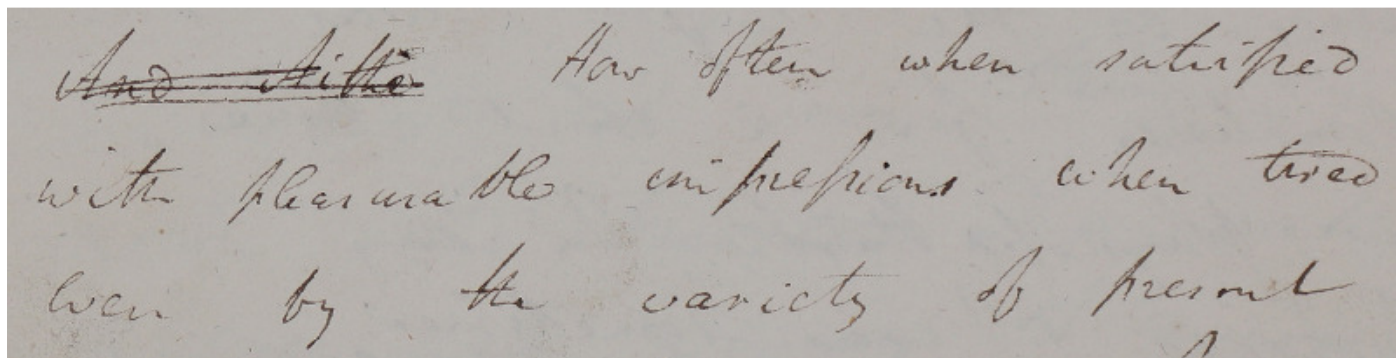 And How often when satisfied
with pleasurable impressions when tired
even by the variety of present